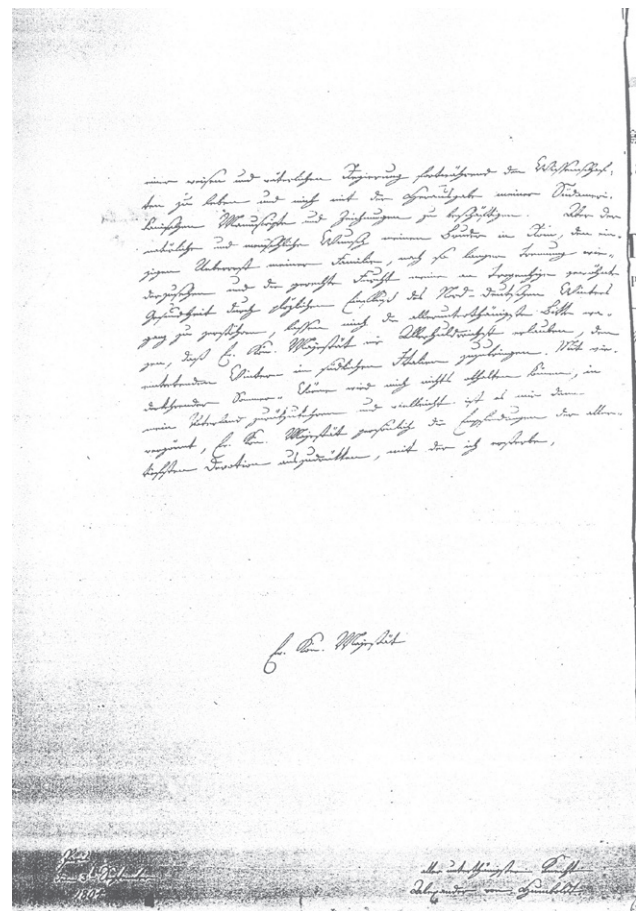 einer weisen und väterlichen Regierung fortwährend den Wissenschaf-
ten zu leben und mich mit der Herausgabe meiner Südameri-
kanischen Manuscripte und Zeichnungen zu beschäftigen. Aber der
natürliche und menschliche Wunsch meinen Bruder in Rom, den ein-
zigen Ueberrest meiner Familie, nach so langer Trennung wie-
derzusehen und die gerechte Furcht meine an Tropenhize gewöhnte
Gesundheit durch plözlichen Einfluss des Nord-deutschen Winters
ganz zu zerstöhren, lassen mich die allerunterthänigste Bitte wa-
gen, daß E. Kön. Majestät mir Allerhuldreichst erlauben, den
eintretenden Winter im südlichen Italien zuzubringen. Mit wie-
derkehrender Sonne wird mich nichts abhalten können, in
mein Vaterland zurückzukehren und vielleicht ist es mir dann
vergönnt, E. Kön. Majestät persönlich die Empfindungen der aller-
tiefsten Devotion auszudrükken, mit der ich ersterbe,
E. Kön. Majestät
Paris
den 3 September
1804
allerunterthänigster Knecht
Alexander von Humboldt